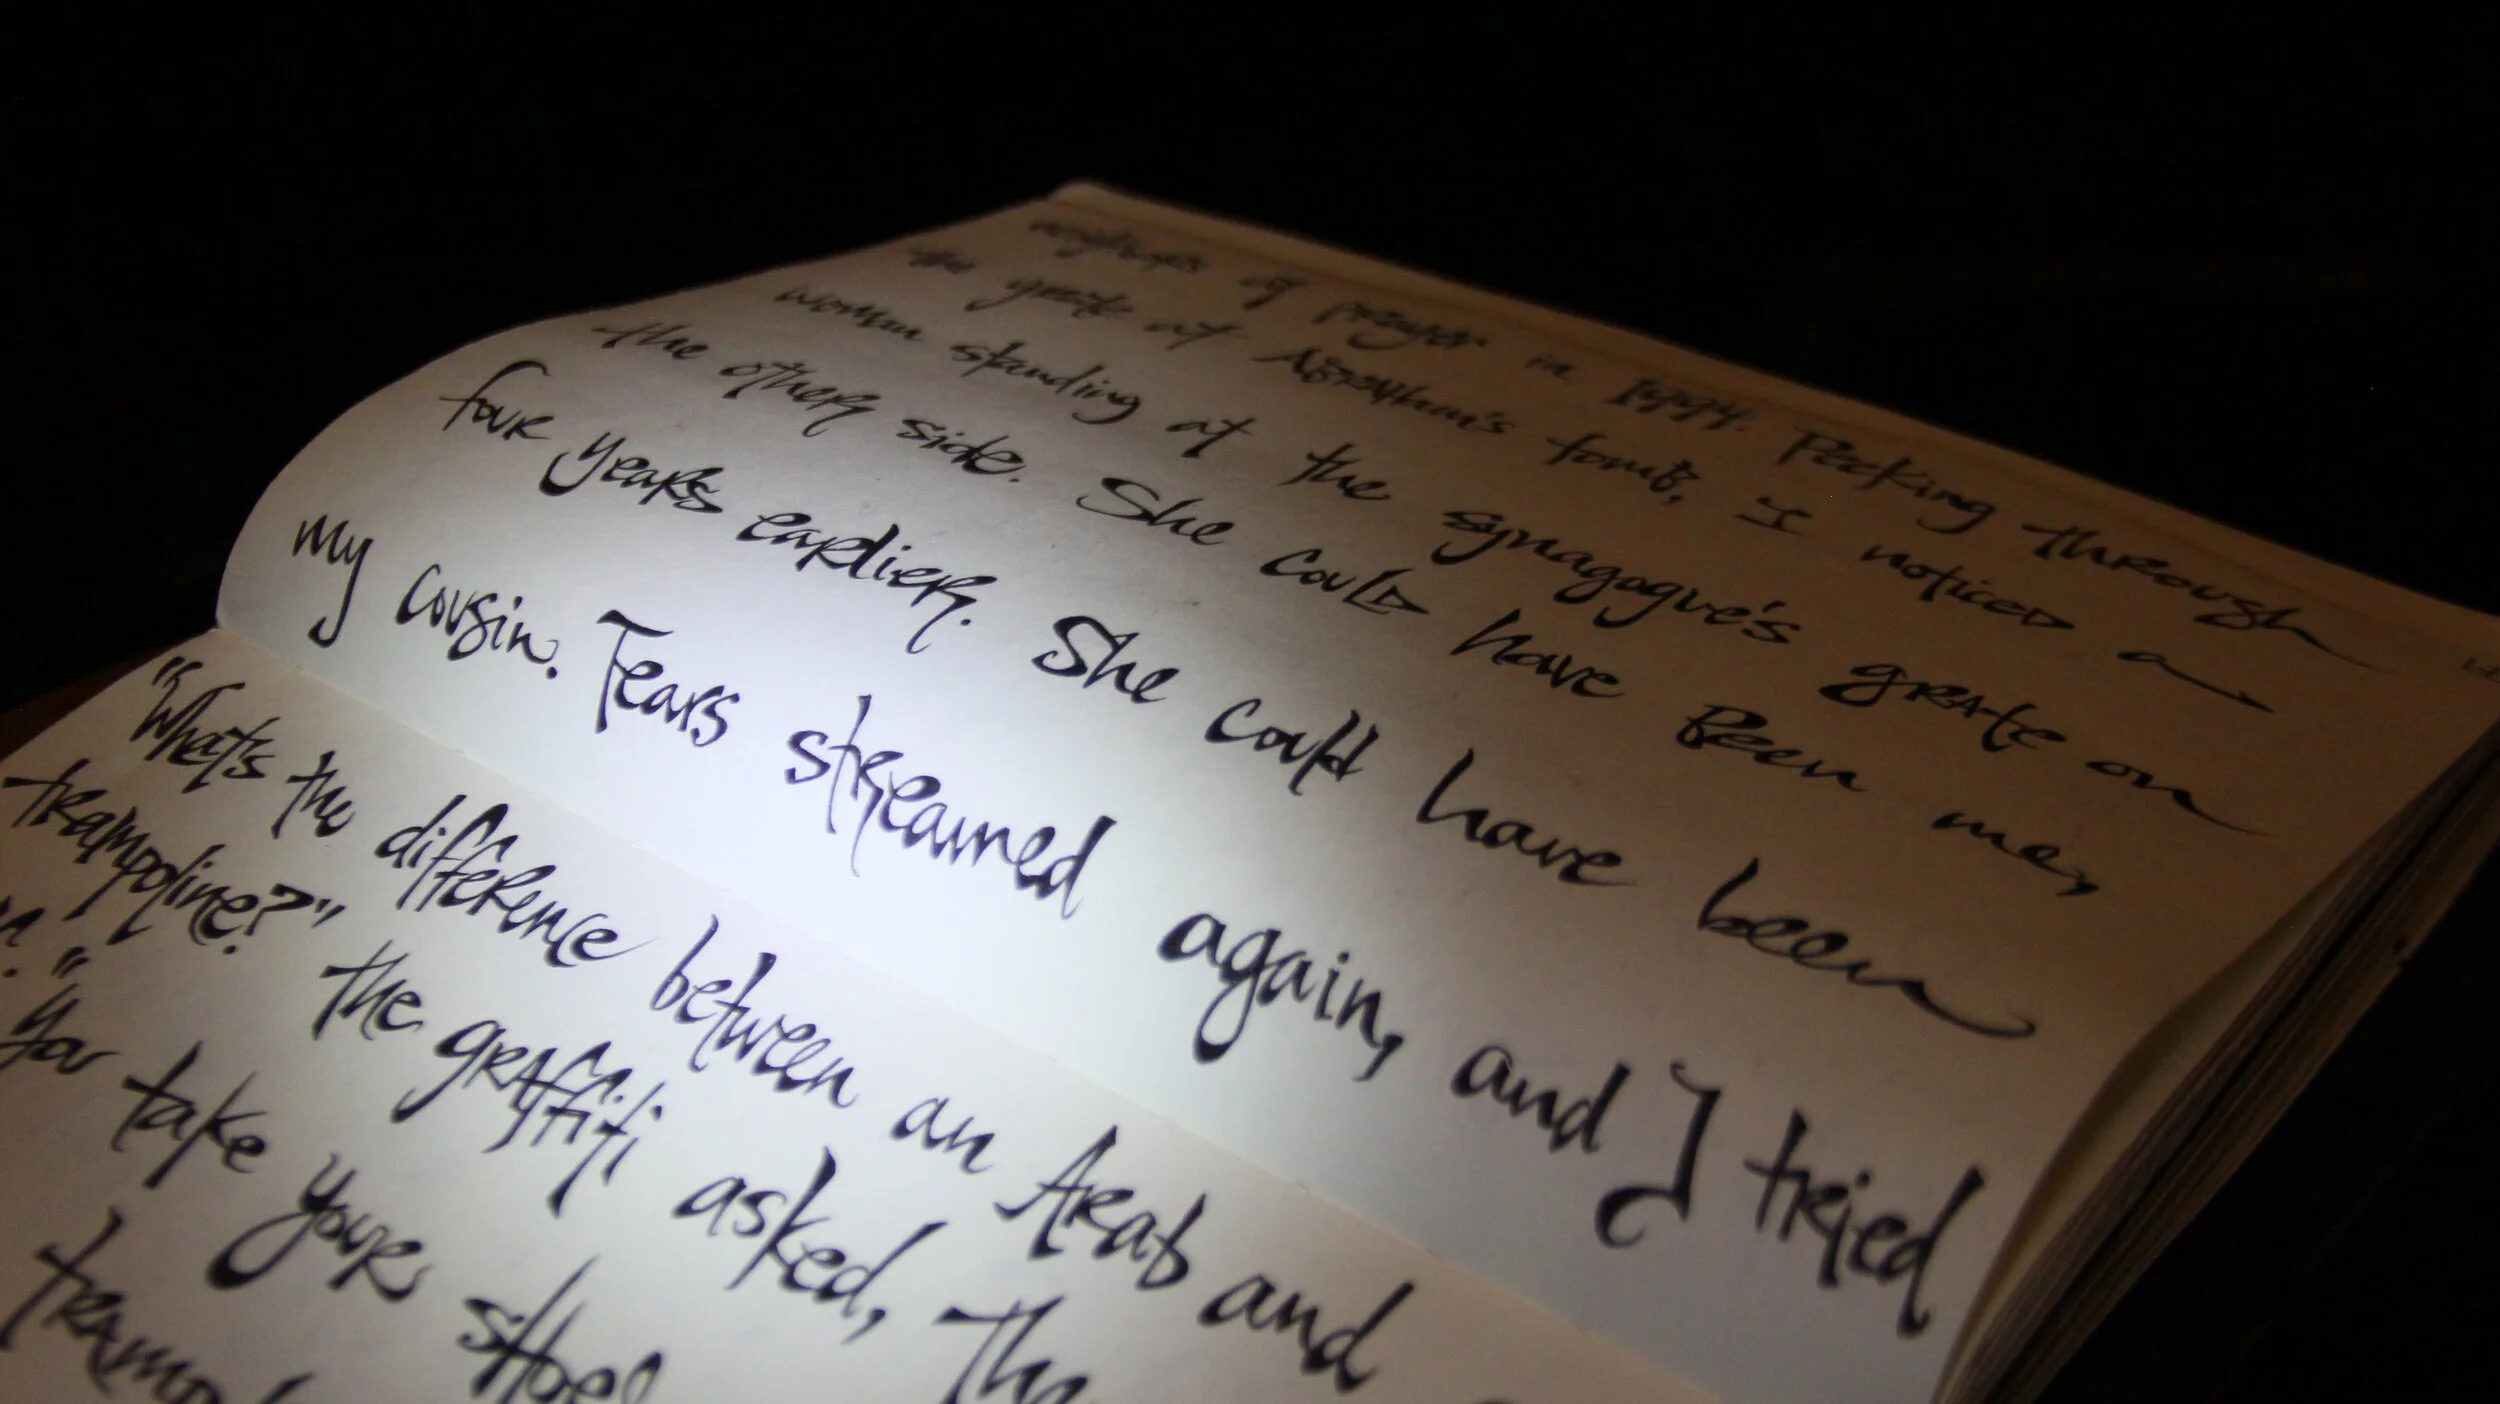 of prayer in 1994. Peeking through
the grate at Abraham's tomb, I noticed a
woman standing at the synagogue's grate on
the other side. She could have been me,
four years earlier. She could have been
my cousin. Tears streamed again, and I tried
"What's the difference between an Arab and
trampoline?" the graffiti asked, The
"You take your shoe